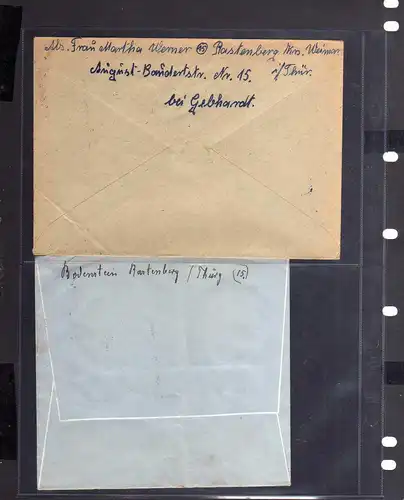 Abs. Frau Martha Werner (15) Rastenberg Krs. Weimar
August-Baudertstr. Nr. 15. i/Thür.
bei Gebhardt.
Bodenstein Rastenberg / Thürg (15)